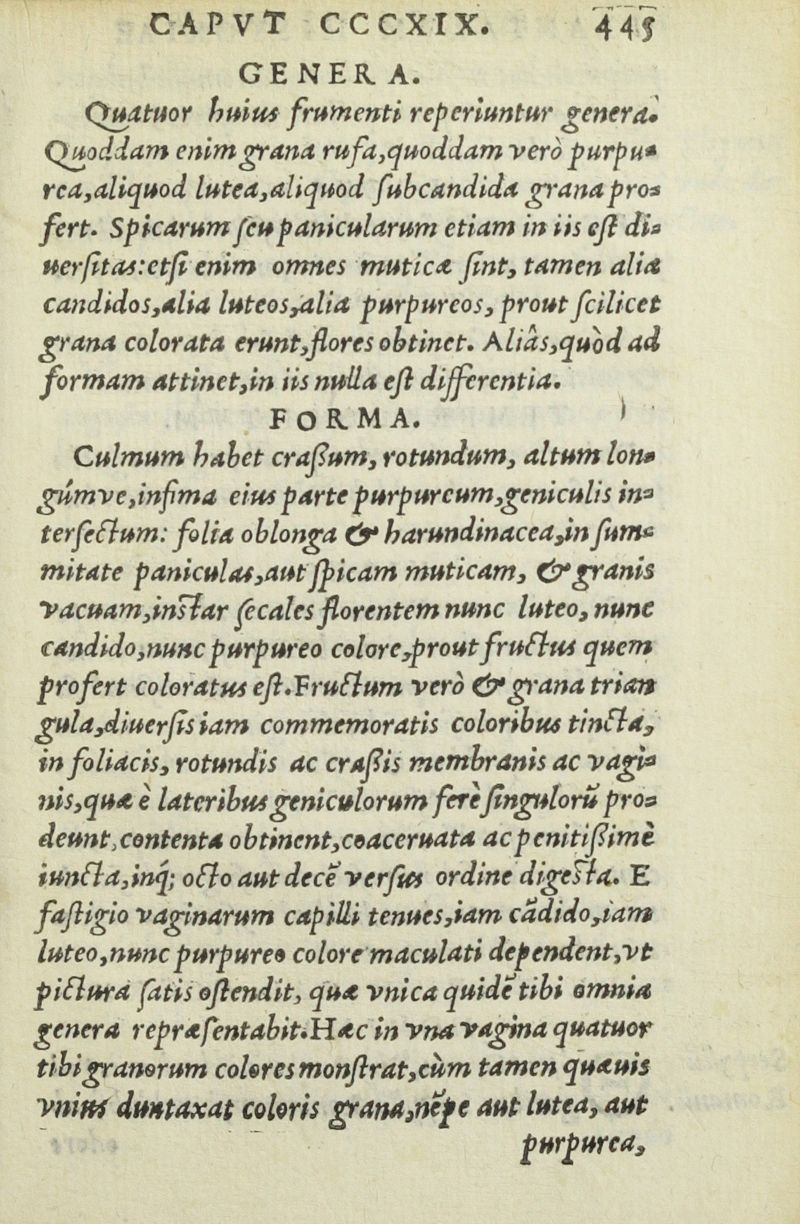 CAPVT CCCXIX. 445
GENERA.
Quatuor huius frumenti reperiuntur genera.
Quoddam enim grana rufa, quoddam verò purpu-
rea, aliquod lutea, aliquod ſubcandida grana pro-
fert. Spicarum ſeu panicularum etiam in iis eſt di-
uerſitas: etſi enim omnes muticæ ſint, tamen alia
candidos, alia luteos, alia purpureos, prout ſcilicet
grana colorata erunt, flores obtinet. Aliâs, quòd ad
formam attinet, in iis nulla eſt differentia.
FORMA.
Culmum habet craßum, rotundum, altum lon-
gúmve, infima eius parte purpureum, geniculis in-
terſectum: folia oblonga & harundinacea, in ſum-
mitate paniculas, aut ſpicam muticam, & granis
vacuam, inſtar ſecales florentem nunc luteo, nunc
candido, nunc purpureo colore, prout fructus quem
profert coloratus eſt. Fructum verò & grana trian
gula, diuerſis iam commemoratis coloribus tincta,
in foliacis, rotundis ac craßis membranis ac vagi-
nis, quæ è lateribus geniculorum ferè ſingulorũ pro-
deunt, contenta obtinent, coaceruata ac penitißimè
iuncta, inq́; octo aut decẽ verſus ordine digeſta. E
faſtigio vaginarum capilli tenues, iam cãdido, iam
luteo, nunc purpureo colore maculati dependent, vt
pictura ſatis oſtendit, quæ vnica quidẽ tibi omnia
genera repræſentabit. Hæc in vna vagina quatuor
tibi granorum colores monſtrat, cùm tamen quæuis
vnius duntaxat coloris grana, nẽpe aut lutea, aut
purpurea,